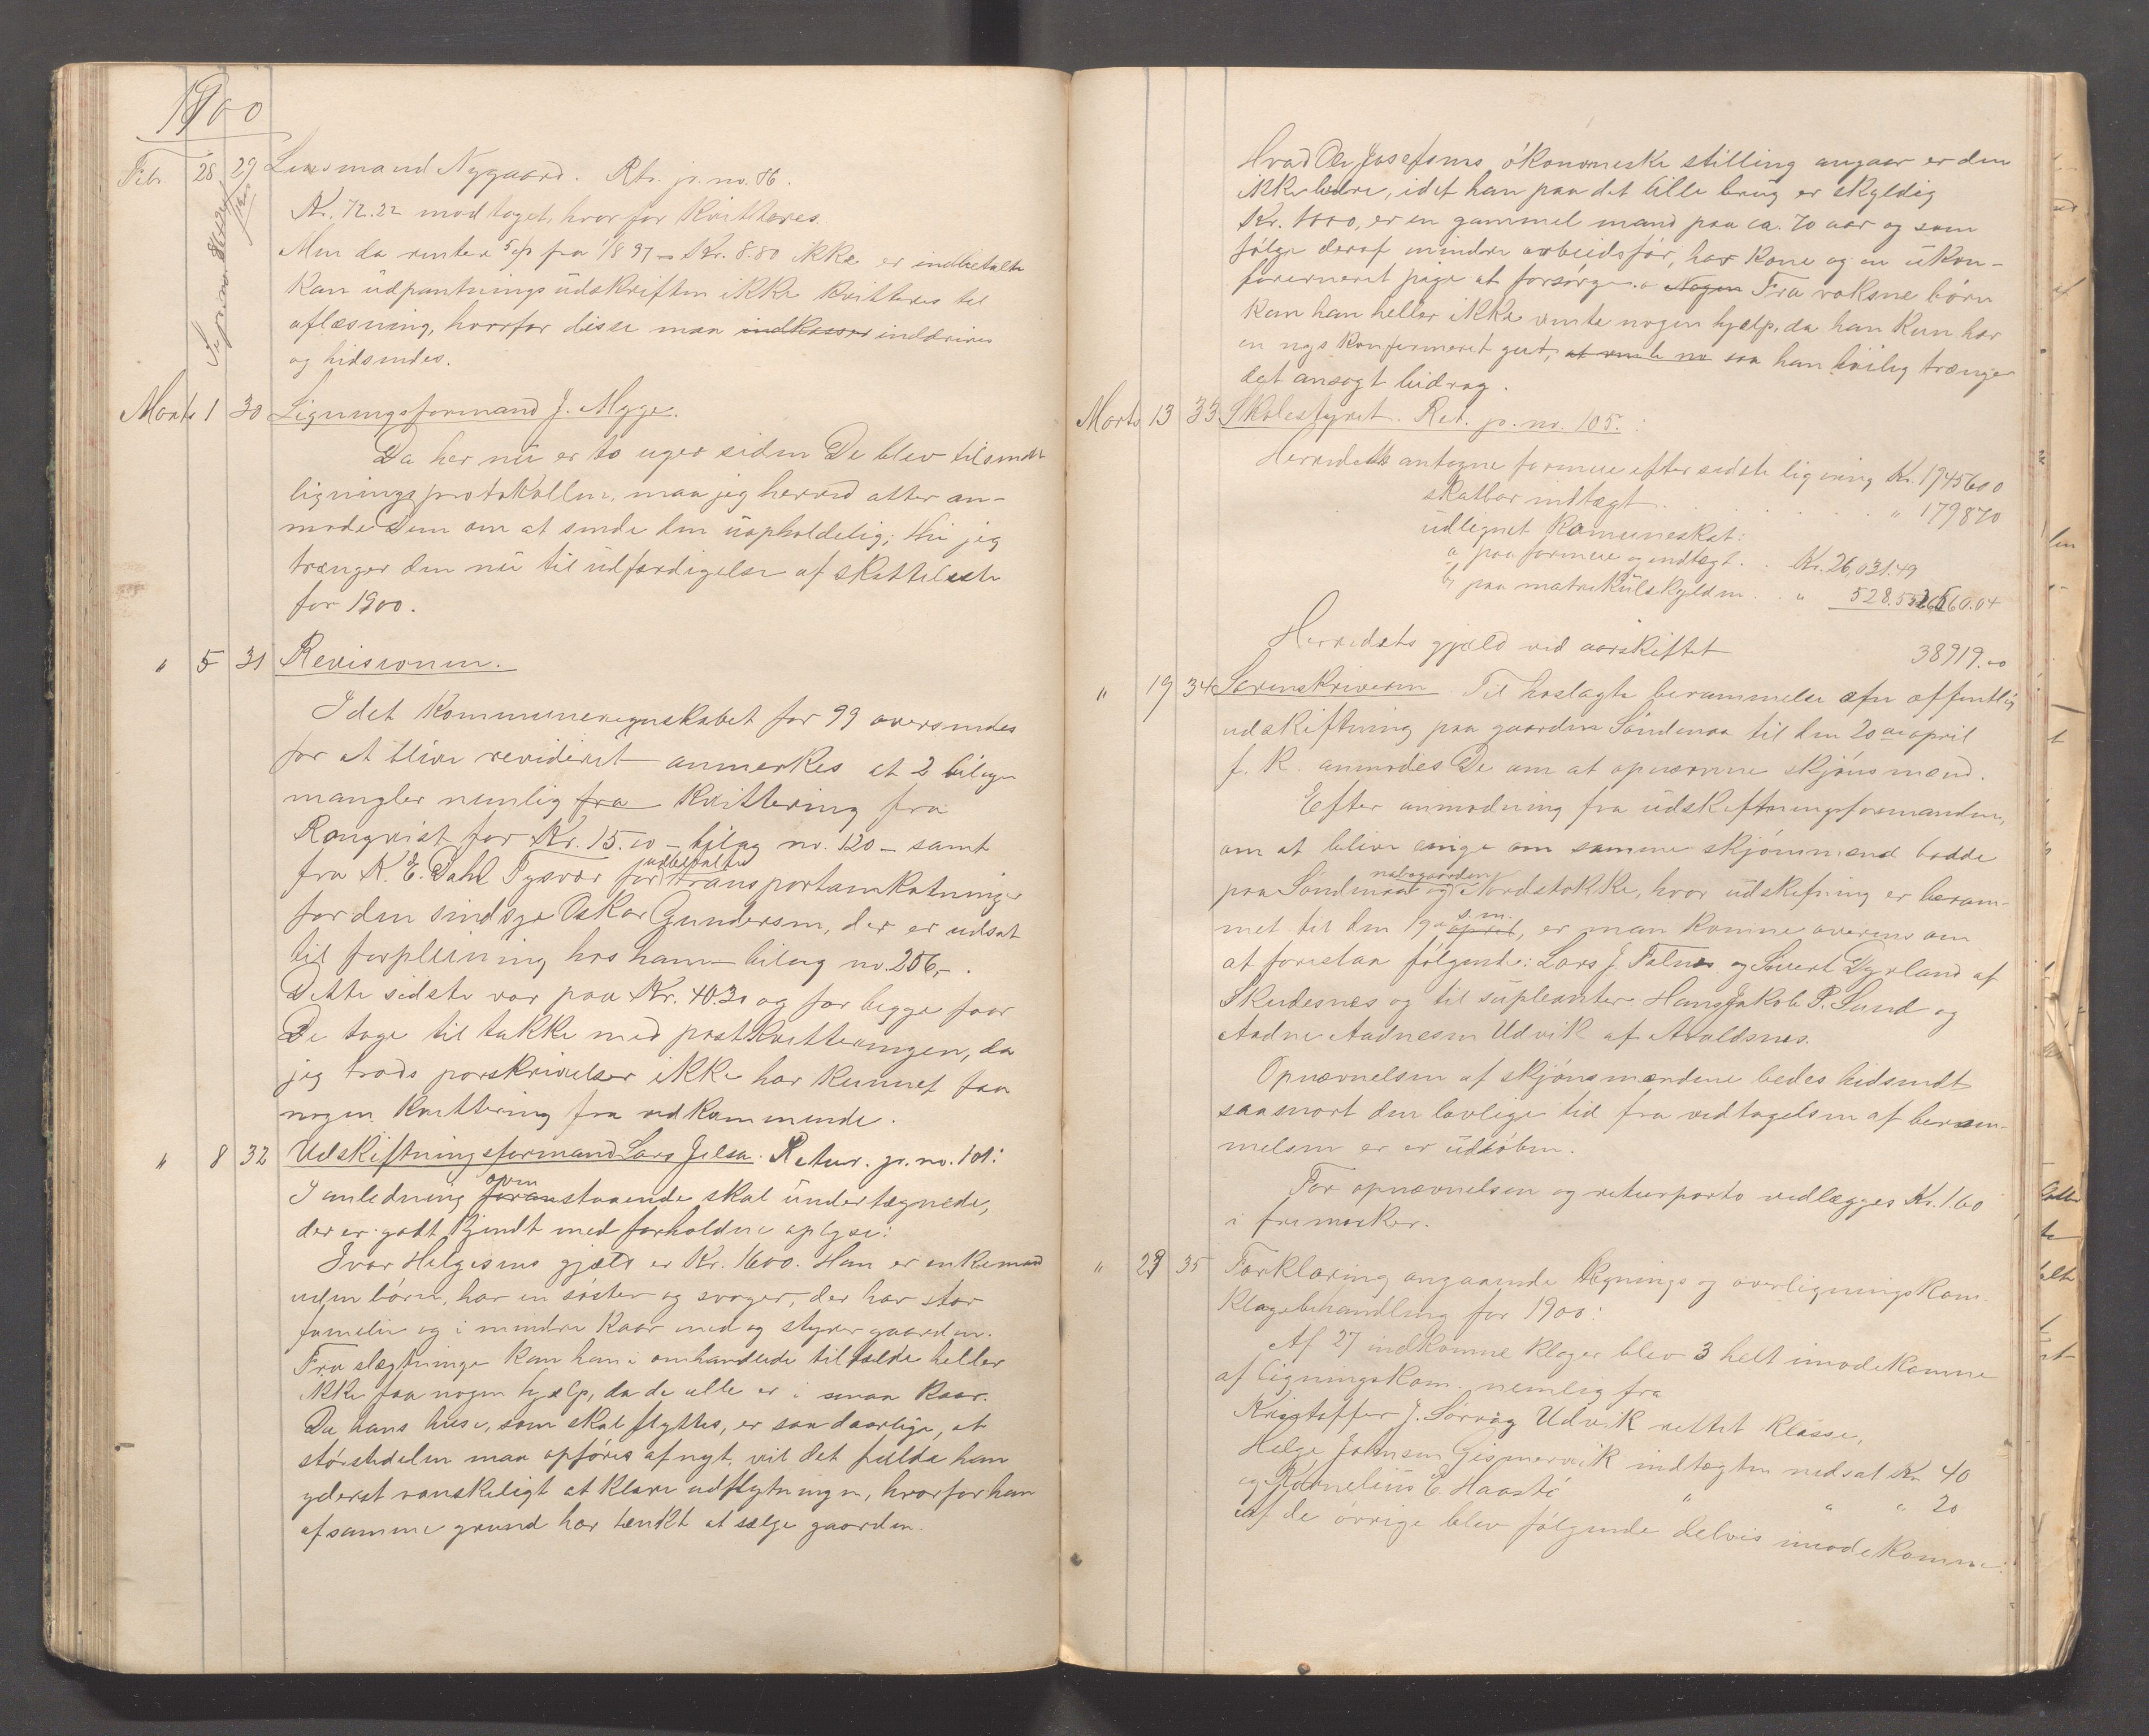 1900
Febr. 28 29 Lensmand Nygaard. Rtr. jr. no. 86.
Kr. 72.22 modtaget, hvorfor kvitteres.
Men da renter 5 % fra 1/8 97 – Kr. 8.80 ikke er indbetalte
kan udpantningsudskriften ikke kvitteres til
aflæsning, hvorfor disse maa indkasser inddrives
og hidsendes.
Marts 1 30 Ligningsformand J. Mygge.
Da her nu er to uger siden De blev tilsendt
ligningsprotokollen, maa jeg herved atter an-
mode Dem om at sende den uopholdelig; thi jeg
trænger den nu til udfærdigelse af skatteliste
for 1900.
" 5 31 Revisionen.
Idet Kommuneregnskabet for 99 oversendes
for at blive revideret anmerkes at 2 bilage
mangler nemlig fra kvittering fra
Ronqvist for Kr. 15.00 – bilag no. 120 – samt
fra K. E. Dahl Tysvær for udbetalte transportomkostninger
for den sindsyge Oskar Gundersen, der er udsat
til forpleining hos ham – bilag no. 206,-.
Dette sidste var paa Kr. 40.30 og for begge faar
De tage til takke med postkvitteringen, da
jeg trods paaskrivelser ikke har kunnet faa
nogen kvittering fra vedkommende.
" 8 32 Udskiftningsformand Lars Jelsa. Retur. jr. no. 101:
I anledning foran oven staaende skal undertegnede,
der er godt kjendt med forholdene oplyse:
Ivar Helgesens gjæld er Kr. 1600. Han er enkemand
uden børn, har en søster og svoger, der har stor
familie og i mindre kaar med og styrer gaarden.
Fra slægtninge kan han i omhandlede tilfælde heller
ikke faa nogen hjælp, da de alle er i smaa kaar.
Da hans huse, som skal flyttes, er saa daarlige, at
størstedelen maa opføres af nyt, vil det falde ham
yderst vanskeligt at klare udflytningen, hvorfor han
af samme grund har tænkt at sælge gaarden.
Hvad Ole Josefsens økonomiske stilling angaar er den
ikke bedre, idet han paa det lille brug er skyldig
Kr. 1000, er en gammel mand paa ca. 70 aar og som
følge deraf mindre arbeidsfør, har kone og en ukon-
firmeret pige at forsørge. Nogen Fra voksne børn
kan han heller ikke vente nogen hjælp, da han kun har
en nys konfirmeret gut, at vente no saa han høilig trænger
det ansøgt bidrag.
Marts 13 33 Skolestyret. Ret. jr. no. 105.:
Herredets antagne formue efter sidste ligning Kr. 1945600
skatbar indtægt . . . . . . " 179870
udlignet Komuneskat:
a, paa formue og indtægt . . Kr. 26,031.49
b, paa matrikulskylden . . " 528.55 26560.04
Herredets gjæld ved aarskiftet 38919.00
" 19 34 Sorenskriveren Til hoslagte berammelse af en offentlig
udskiftning paa gaarden Søndenaa til den 20de april
f. k. anmodes De om at opnævne skjønsmænd.
Efter anmodning fra udskiftningsformanden,
om at blive enige om samme skjønsmænd bodde
paa Søndenaa og nabogaarden Nordstokke, hvor udskiftning er beram-
met til den 19de april s. m., er man komne overens om
at foreslaa følgende: Lars J. Falnes og Sivert Dyrland af
Skudesnes og til supleanter Hans Jakob P. Sund og
Aadne Aadnesen Udvik af Avaldsnes.
Opnævnelsen af skjønsmændene bedes hidsendt
saasnart den lovlige tid fra vedtagelsen af beram-
melsen er er udløben.
For opnævnelsen og returporto vedlægges Kr. 1.60
i frimærker.
" 29 35 Forklaring angaaende lignings og overligningskom.
klagebehandling for 1900:
Af 27 indkomne klager blev 3 helt imødekomne
af ligningskom. nemlig fra
Kristoffer J. Sørvåg Udvik rettet klasse,
Helge Johnsen Gismervik indtægten nedsat Kr. 40
og Kornelius E. Haastø " " " 20
af de øvrige blev følgende delvis imødekomne: